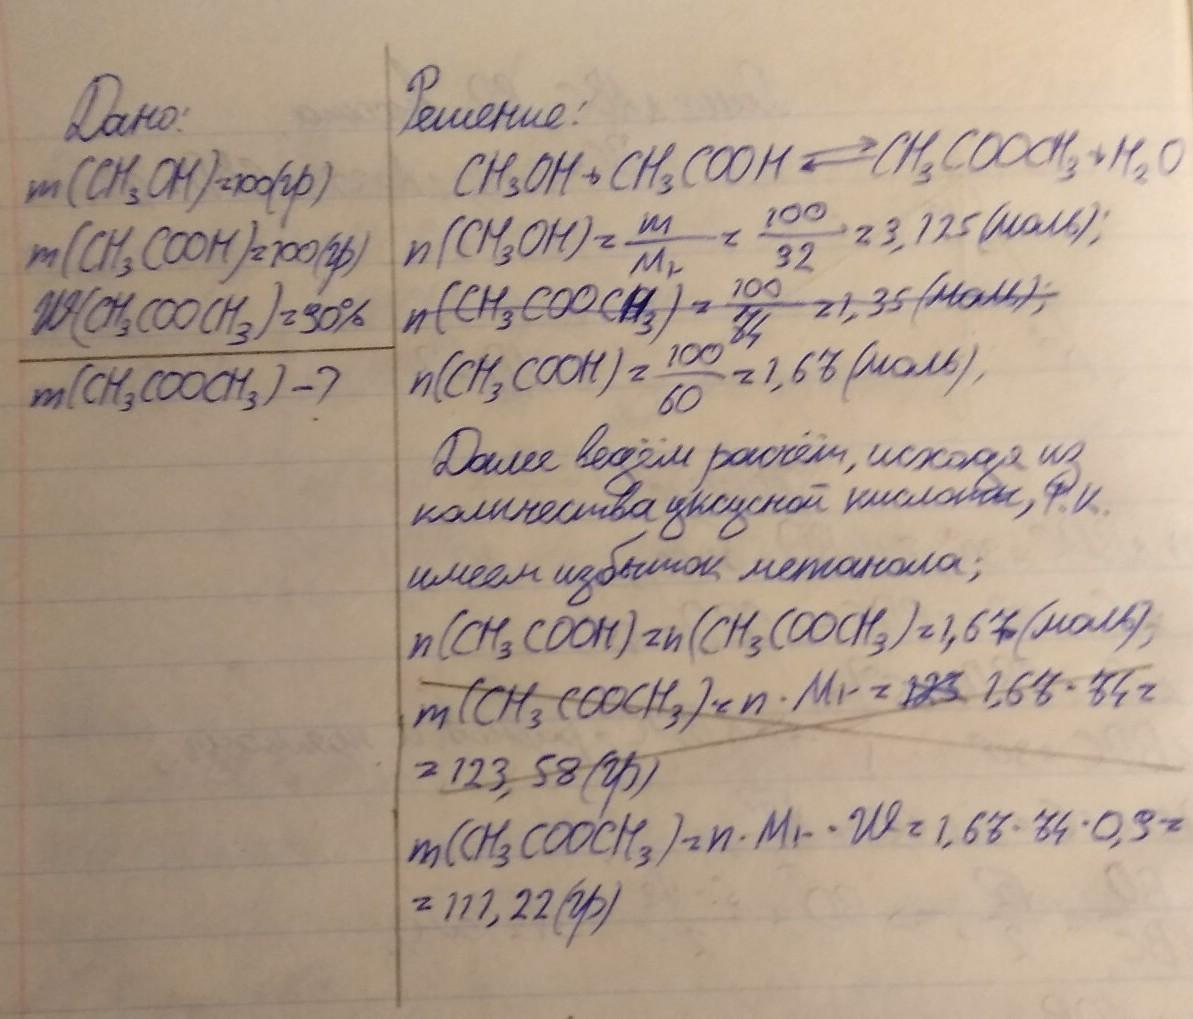 Дано:
m(CH₃OH)=100(гр)
m(CH₃COOH)=100(гр)
W(CH₃COOCH₃)=90%
m(CH₃COOCH₃)-?
Решение:
CH₃OH+CH₃COOH⇄CH₃COOCH₃+H₂O
n(CH₃OH)=m/Mr=100/32=3,125(моль);
n(CH₃COOCH₃)=100/74=1,35(моль);
n(CH₃COOH)=100/60=1,67(моль),
Далее ведём расчёт, исходя из
количества уксусной кислоты, т.к.
имеем избыток метанола;
n(CH₃COOH)=n(CH₃COOCH₃)=1,67(моль);
m(CH₃COOCH₃)=n·Mr=123 1,67·74=
=123,58(гр)
m(CH₃COOCH₃)=n·Mr·W=1,67·74·0,9=
=111,22(гр)